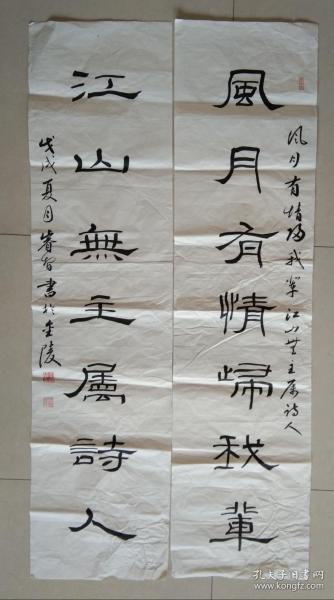 風月有情歸我輩
风月有情归我辈江山无主属诗人
江山無主屬詩人
戊戌夏月睿智書於金陵
孔夫子旧书网